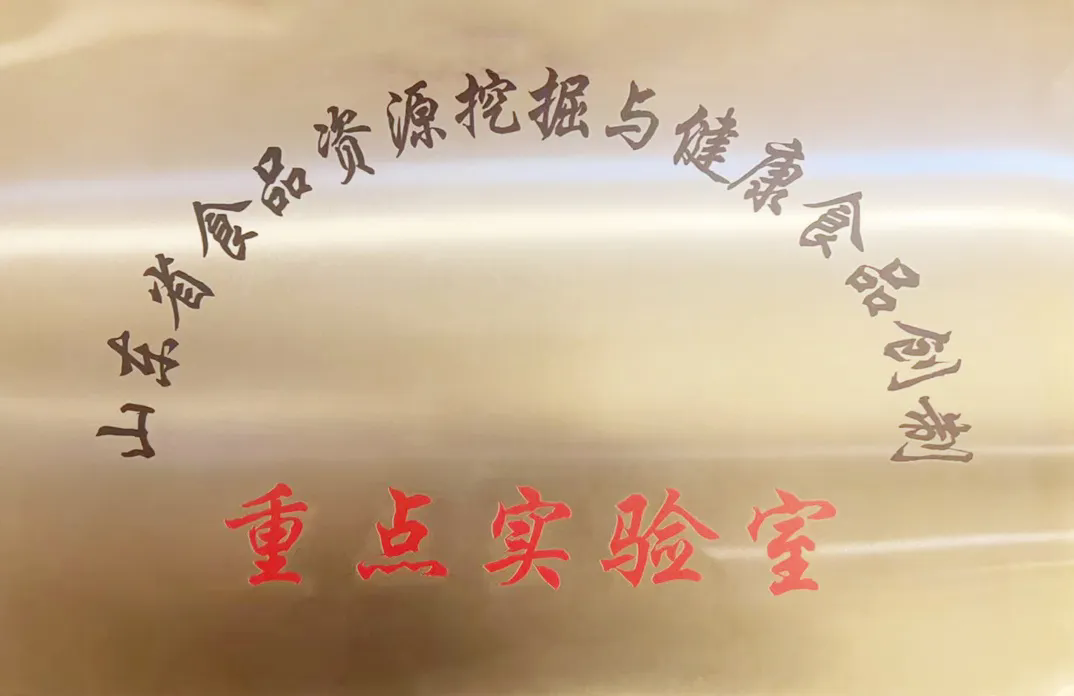 山东省食品资源挖掘与健康食品创制
重点实验室